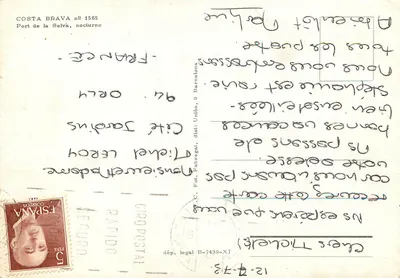 COSTA BRAVA nº 1565
Port de la Selva, nocturno
12-7-73
Ns espérons que vous
recevrez cette carte
car nous n'avons pas
votre adresse
Ns passons de
bonnes vacances
bien ensoleillées-
Stéphanie est ravie.
Nous vous embrassons
tous les quatre
A bientôt
Monsieur et Madame
Michel LEROY
Cité Jardins
94. ORLY
-FRANCE-
dép. legal B-7439-XI
5
PTAS
ESPAÑA